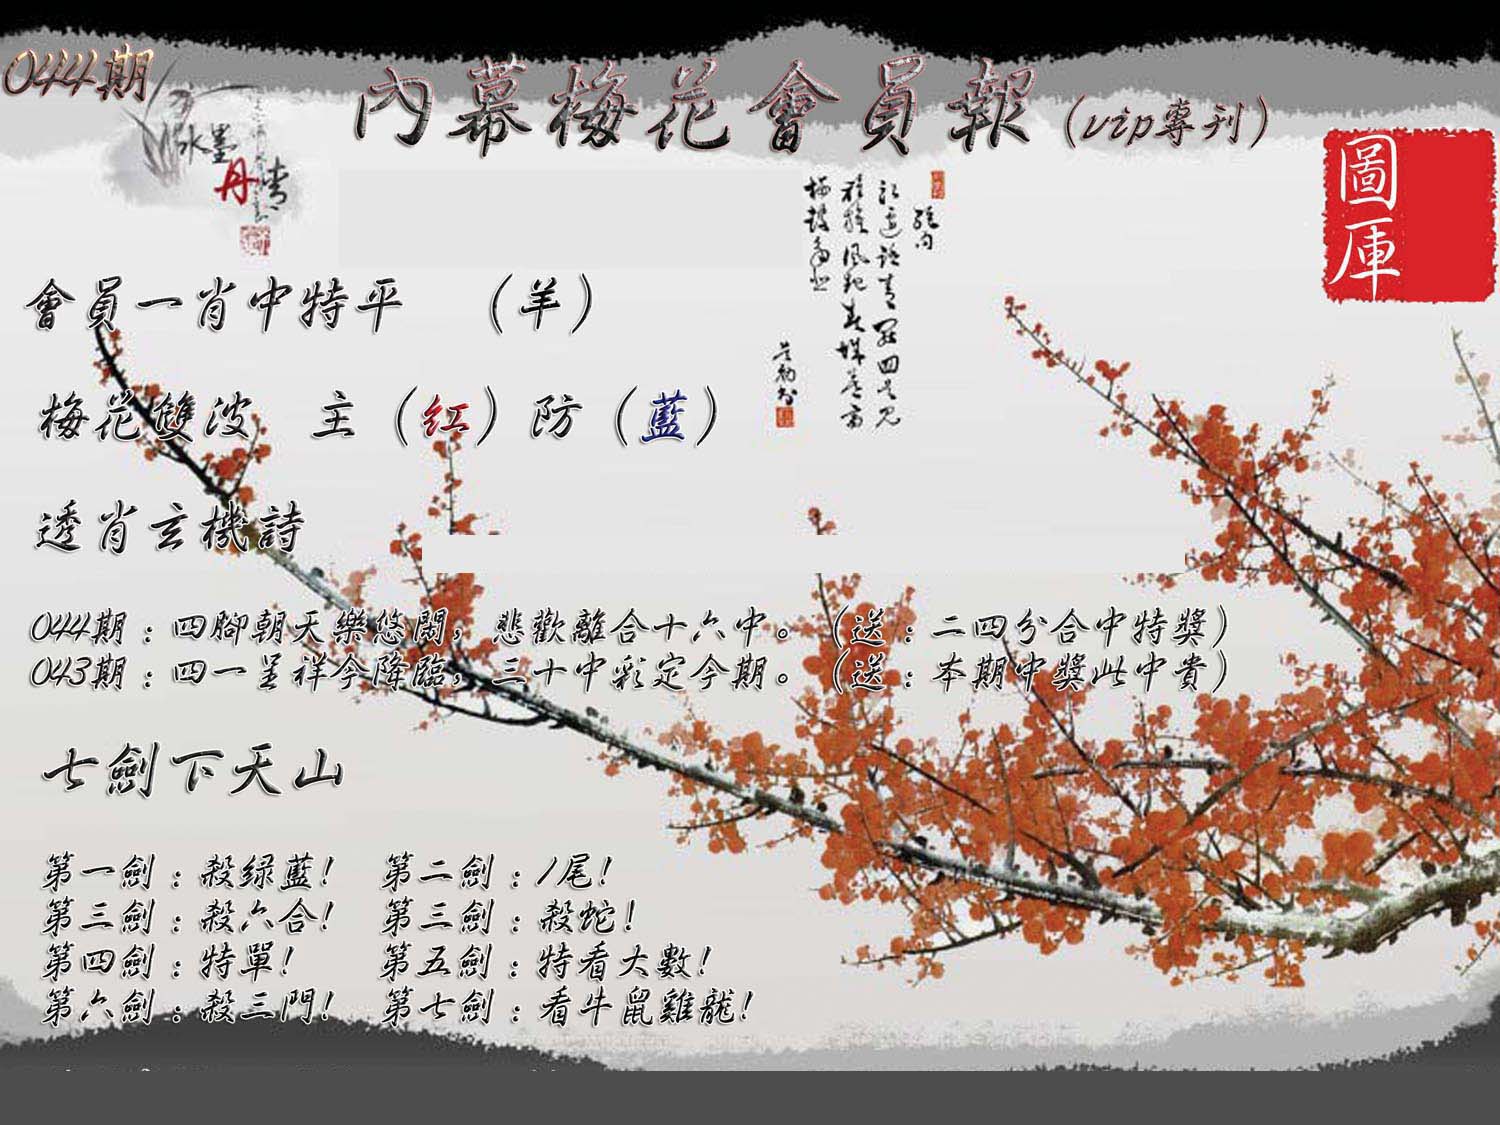 044期
內幕梅花會員報(vip專刊)
水墨
丹青
圖庫
會員一肖中特平 (羊)
梅花雙波 主(紅)防(藍)
透肖玄機詩
044期：四腳朝天樂悠閑，悲歡離合十六中。(送：二四分合中特獎)
043期：四一呈祥今降臨，三十中彩定今期。(送：本期中獎此中貴)
七劍下天山
第一劍：殺绿藍! 第二劍：1尾!
第三劍：殺六合! 第三劍：殺蛇!
第四劍：特單! 第五劍：特看大數!
第六劍：殺三門! 第七劍：看牛鼠雞龍!